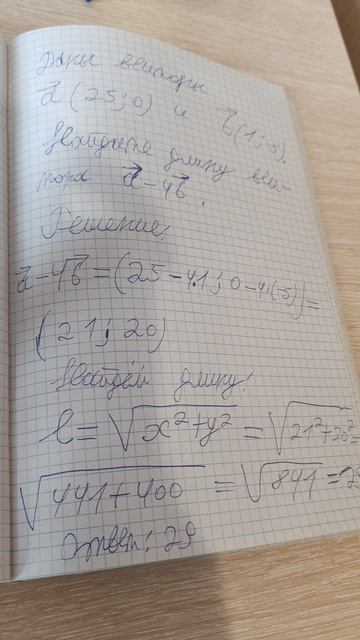 Даны векторы
a⃗ (25; 0) и b⃗ (1; -5).
Найдите длину век-
тора a⃗ - 4b⃗.
Решение:
a⃗ - 4b⃗ = (25 - 4·1; 0 - 4·(-5)) =
(21; 20)
Найдём длину:
l = √x²+y² = √21²+20² =
√441+400 = √841 = 29
Ответ: 29